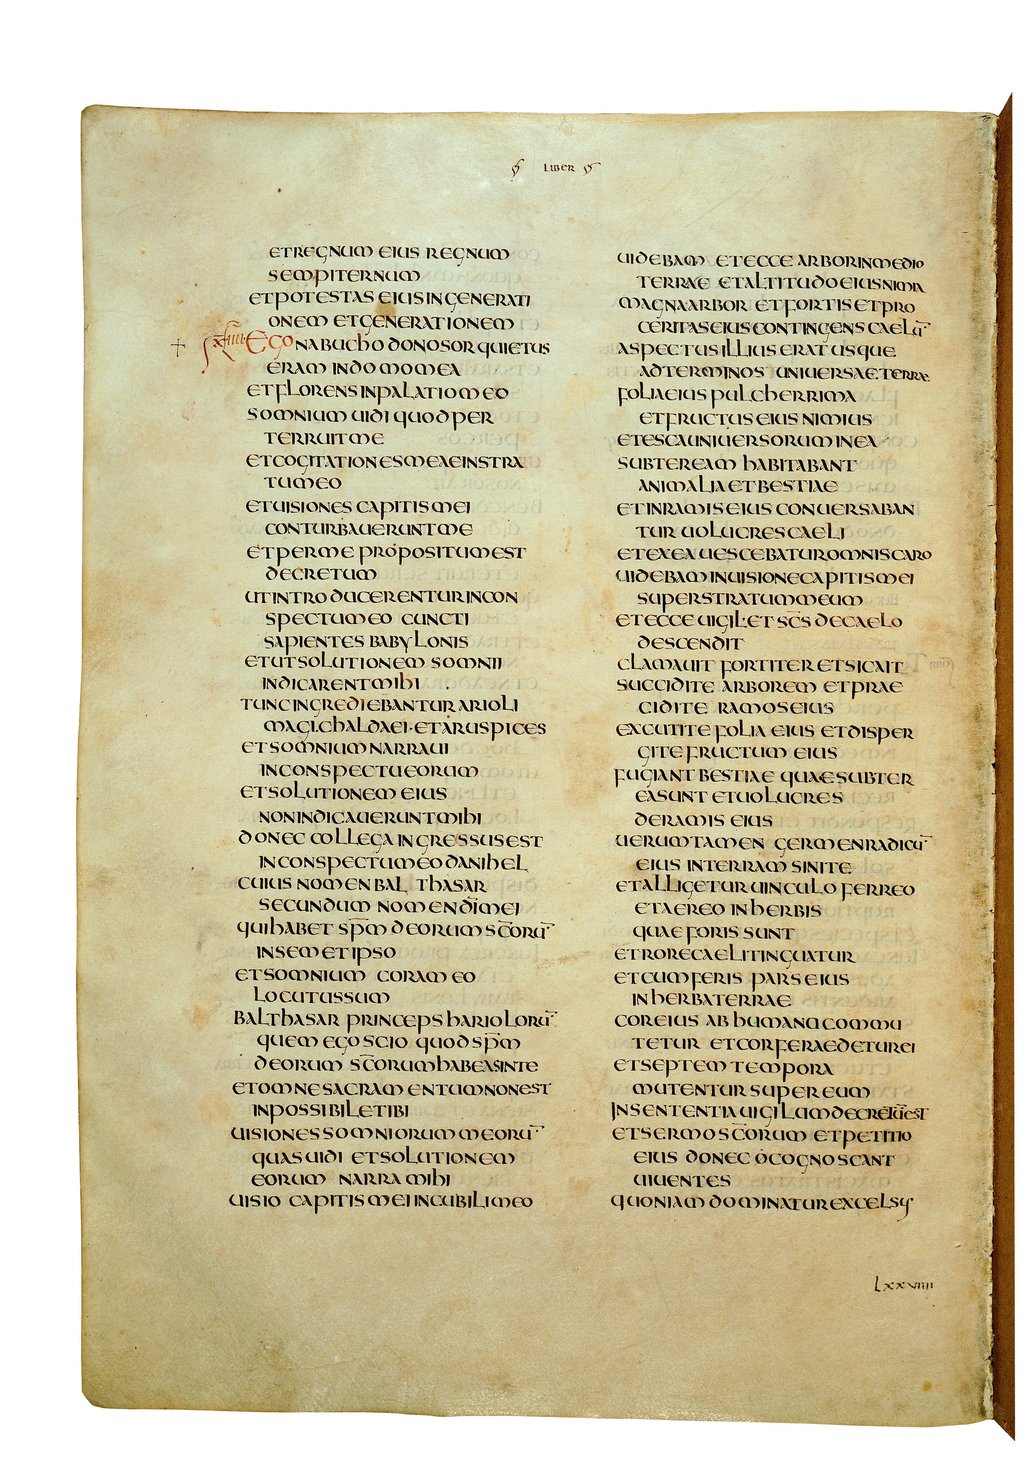 LIBER
ET REGNUM EIUS REGNUM
SEMPITERNUM
ET POTESTAS EIUS IN GENERATI
ONEM ET GENERATIONEM
EGO NABUCHODONOSOR QUIETUS
ERAM IN DOMO MEA
ET FLORENS IN PALATIO MEO
SOMNIUM UIDI QUOD PER
TERRUIT ME
ET COGITATIONES MEAE IN STRA
TU MEO
ET UISIONES CAPITIS MEI
CONTURBAUERUNT ME
ET PER ME PROPOSITUM EST
DECRETUM
UT INTRODUCERENTUR IN CON
SPECTU MEO CUNCTI
SAPIENTES BABYLONIS
ET UT SOLUTIONEM SOMNII
INDICARENT MIHI
TUNC INGREDIEBANTUR ARIOLI
MAGI·CHALDAEI·ET ARUSPICES
ET SOMNIUM NARRAUI
IN CONSPECTU EORUM
ET SOLUTIONEM EIUS
NON INDICAUERUNT MIHI
DONEC COLLEGA INGRESSUS EST
IN CONSPECTU MEO DANIHEL
CUIUS NOMEN BALTHASAR
SECUNDUM NOMEN DĪ MEI
QUI HABET SPM̄ DEORUM SC̄ORŪ
IN SEMETIPSO
ET SOMNIUM CORAM EO
LOCUTUS SUM
BALTHASAR PRINCEPS HARIOLORŪ
QUEM EGO SCIO QUOD SPM̄
DEORUM SC̄ORUM HABEAS IN TE
ET OMNE SACRAMENTUM NON EST
INPOSSIBILE TIBI
UISIONES SOMNIORUM MEORŪ
QUAS UIDI ET SOLUTIONEM
EORUM NARRA MIHI
UISIO CAPITIS MEI IN CUBILI MEO
UIDEBAM ET ECCE ARBOR IN MEDIO
TERRAE ET ALTITUDO EIUS NIMIA
MAGNA ARBOR ET FORTIS ET PRO
CERITAS EIUS CONTINGENS CAELŪ
ASPECTUS ILLIUS ERAT USQUE
AD TERMINOS UNIUERSAE TERRAE
FOLIA EIUS PULCHERRIMA
ET FRUCTUS EIUS NIMIUS
ET ESCA UNIUERSORUM IN EA
SUBTER EAM HABITABANT
ANIMALIA ET BESTIAE
ET IN RAMIS EIUS CONUERSABAN
TUR UOLUCRES CAELI
ET EX EA UESCEBATUR OMNIS CARO
UIDEBAM IN UISIONE CAPITIS MEI
SUPER STRATUM MEUM
ET ECCE UIGIL·ET SC̄S DE CAELO
DESCENDIT
CLAMAUIT FORTITER ET SIC AIT
SUCCIDITE ARBOREM ET PRAE
CIDITE RAMOS EIUS
EXCUTITE FOLIA EIUS ET DISPER
GITE FRUCTUM EIUS
FUGIANT BESTIAE QUAE SUBTER
EA SUNT ET UOLUCRES
DE RAMIS EIUS
UERUMTAMEN GERMEN RADICŪ
EIUS IN TERRAM SINITE
ET ALLIGETUR UINCULO FERREO
ET AEREO IN HERBIS
QUAE FORIS SUNT
ET RORE CAELI TINGUATUR
ET CUM FERIS PARS EIUS
IN HERBA TERRAE
COR EIUS AB HUMANO COMMU
TETUR ET COR FERAE DETUR EI
ET SEPTEM TEMPORA
MUTENTUR SUPER EUM
IN SENTENTIA UIGILUM DECRETŪ EST
ET SERMO SC̄ORUM ET PETITIO
EIUS DONEC COGNOSCANT
UIUENTES
QUONIAM DOMINATUR EXCELSUS
LXXVIIII